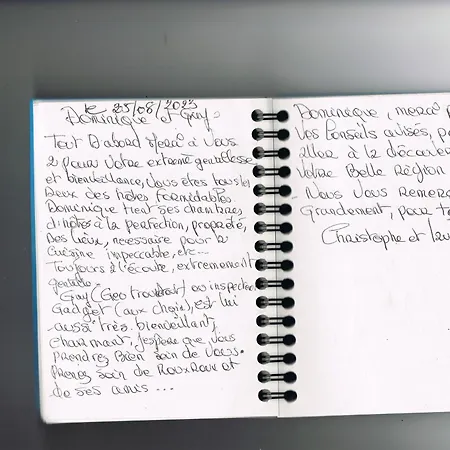 le 25/08/2023
Dominique et Guy.
Tout D'abord merci à Vous
2 pour Votre extrême gentillesse
et bienveillance, Vous êtes tous les
Deux des hôtes formidables.
Dominique tient ses chambres
d'hôtes à la perfection, propreté,
Des lieux, necessaire pour la
Cuisine impeccable, etc...
Toujours à l'écoute, extremement
gentille.
Guy (Geo trouvetout) ou inspecteur
Gadget (aux choix), est lui
aussi très bienveillant,
charmant, j'espère que Vous
prendrez Bien soin de Vous.
Prenez soin de Roux Roux et
de ses amis ...
Dominique, merci p
Vos Conseils avisés, po
aller à la découver
Votre Belle Région
Nous Vous Remerc
Grandement, pour t
Christophe et